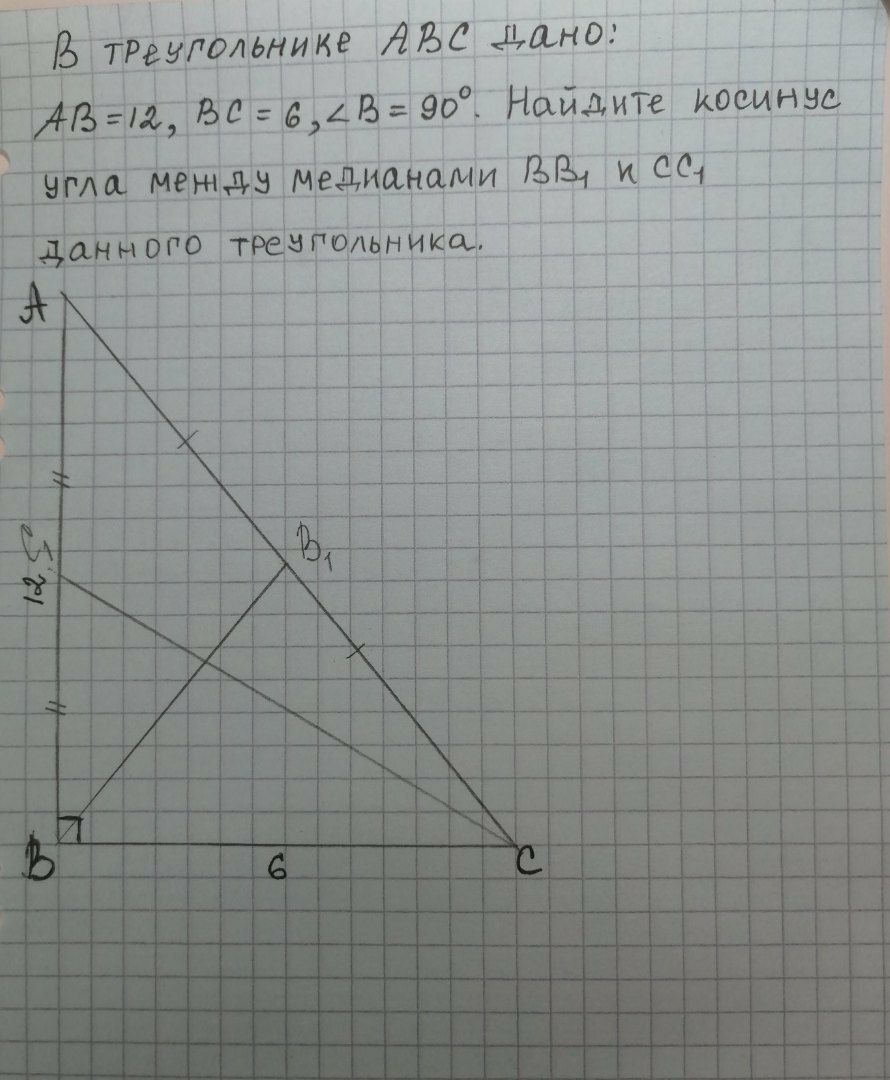 В треугольнике ABC дано:
AB = 12, BC = 6, ∠B = 90°. Найдите косинус
угла между медианами BB₁ и CC₁
данного треугольника.
A
B₁
C₁
12
B
6
C